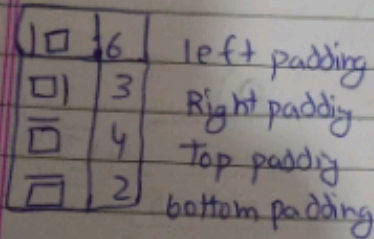 6 left padding
3 Right paddiy
4 Top paddiy
2 bottom padding